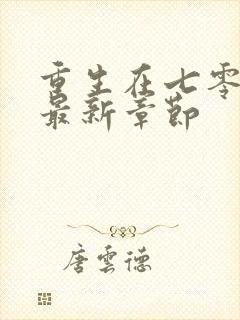 重生在七零
最新章節
唐雲德